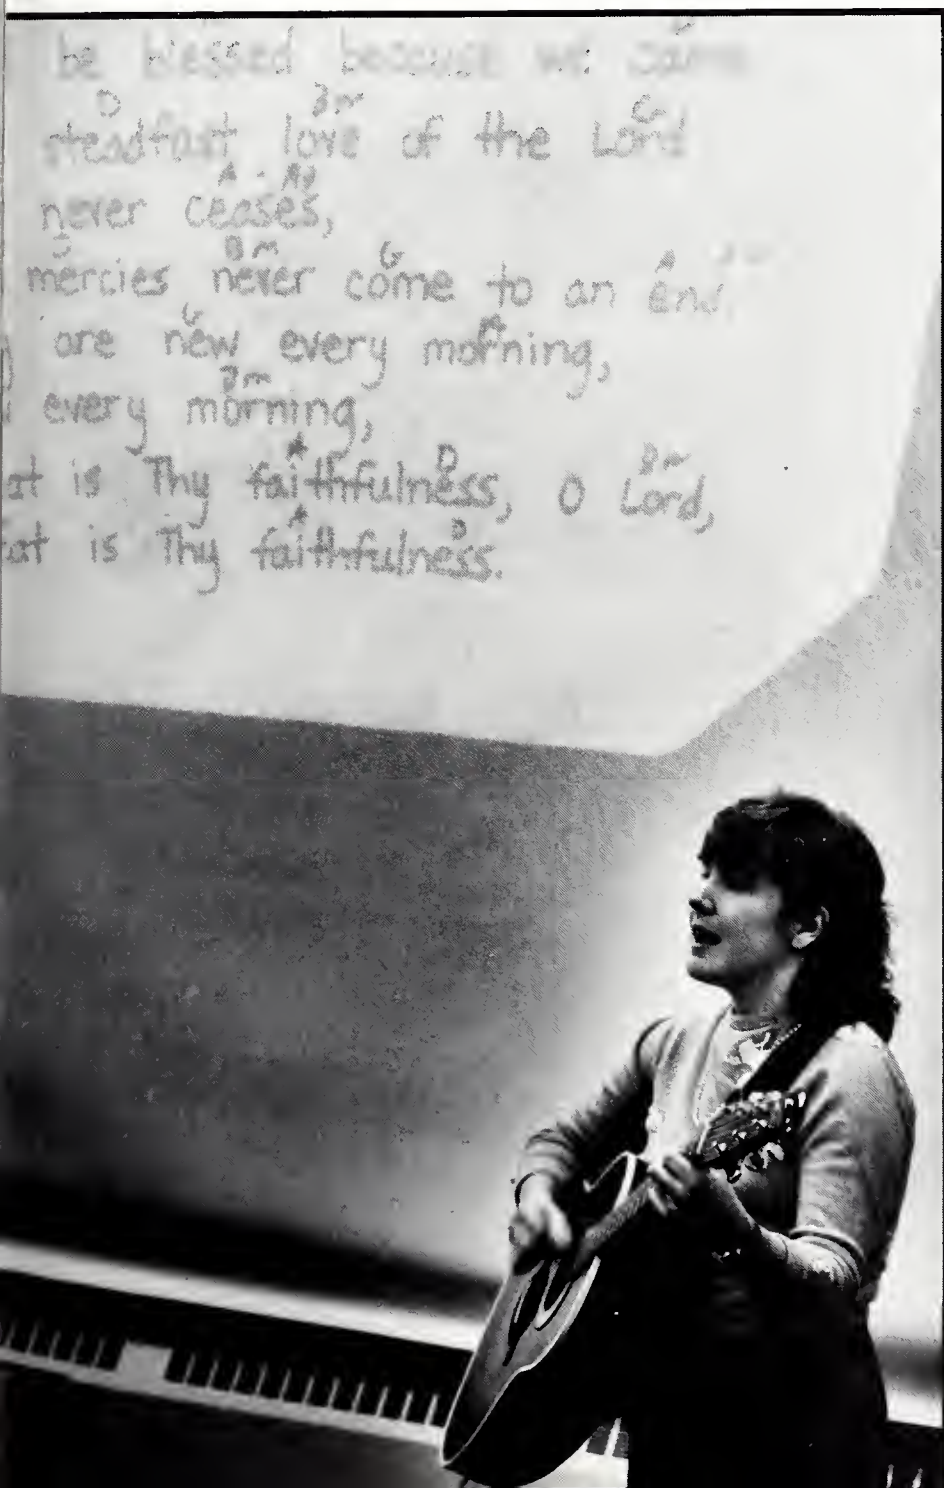 be blessed because we came
D Bm G
steadfast love of the Lord
A - A7
never ceases,
D Bm G A
mercies never come to an end,
G A
are new every morning,
Bm
every morning,
A D Bm
at is Thy faithfulness, O Lord,
A D
at is Thy faithfulness.